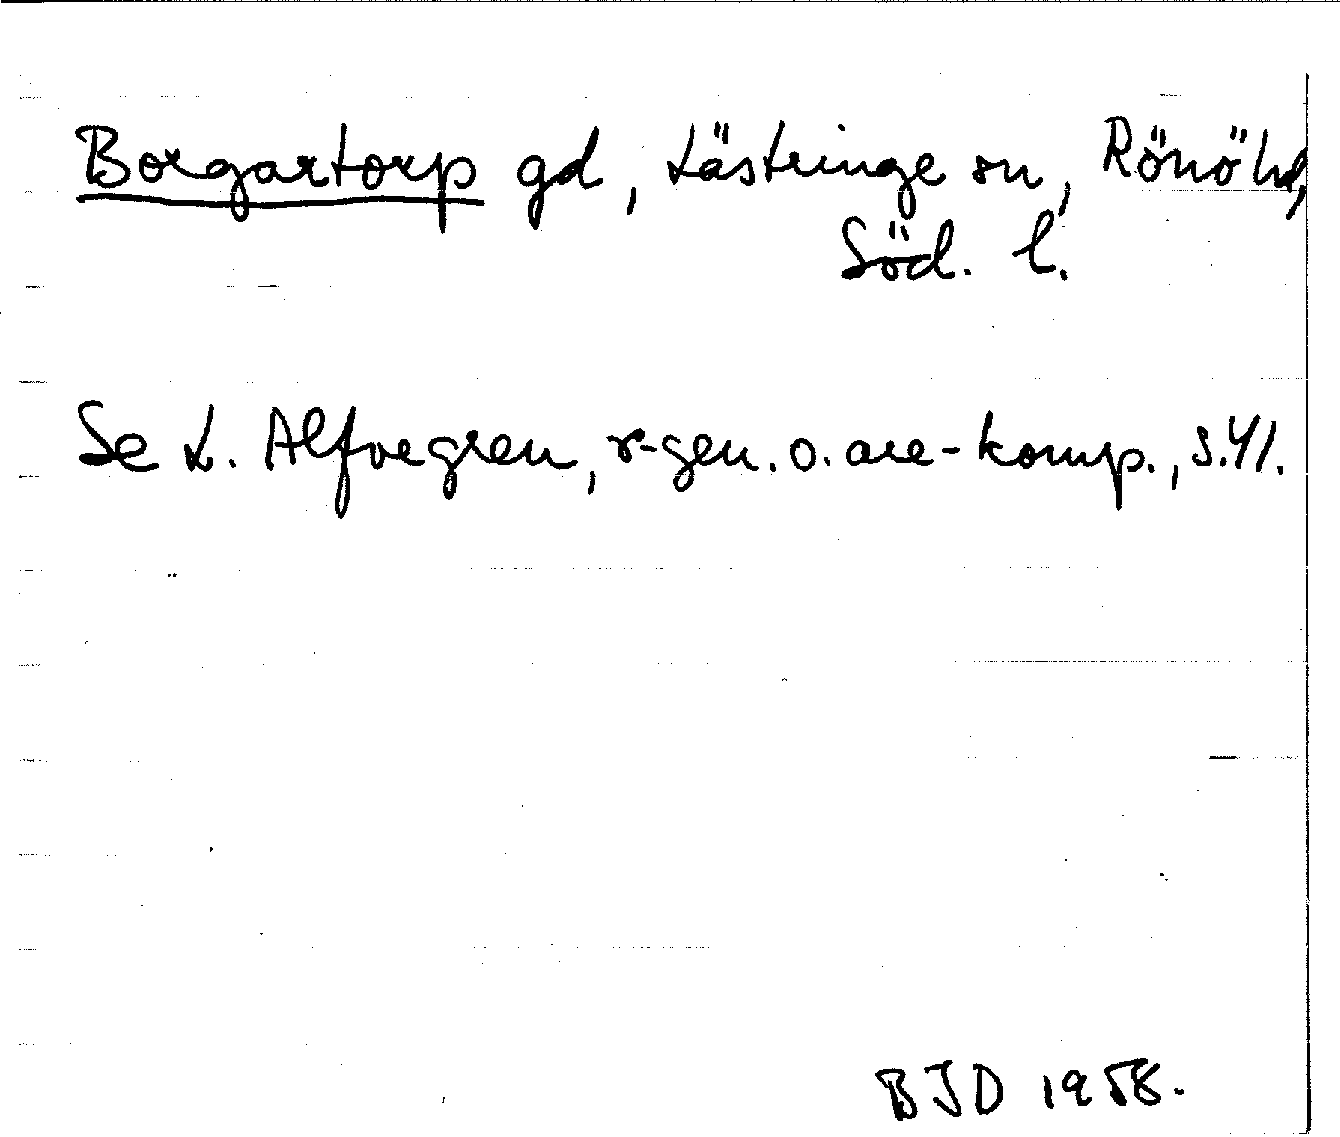 Borgartorp gd, Lästringe sn, Rönö hd,
Söd. l.
Se L. Alfvegren, r-gen. o. are-komp., s. 41.
BJD 1958.